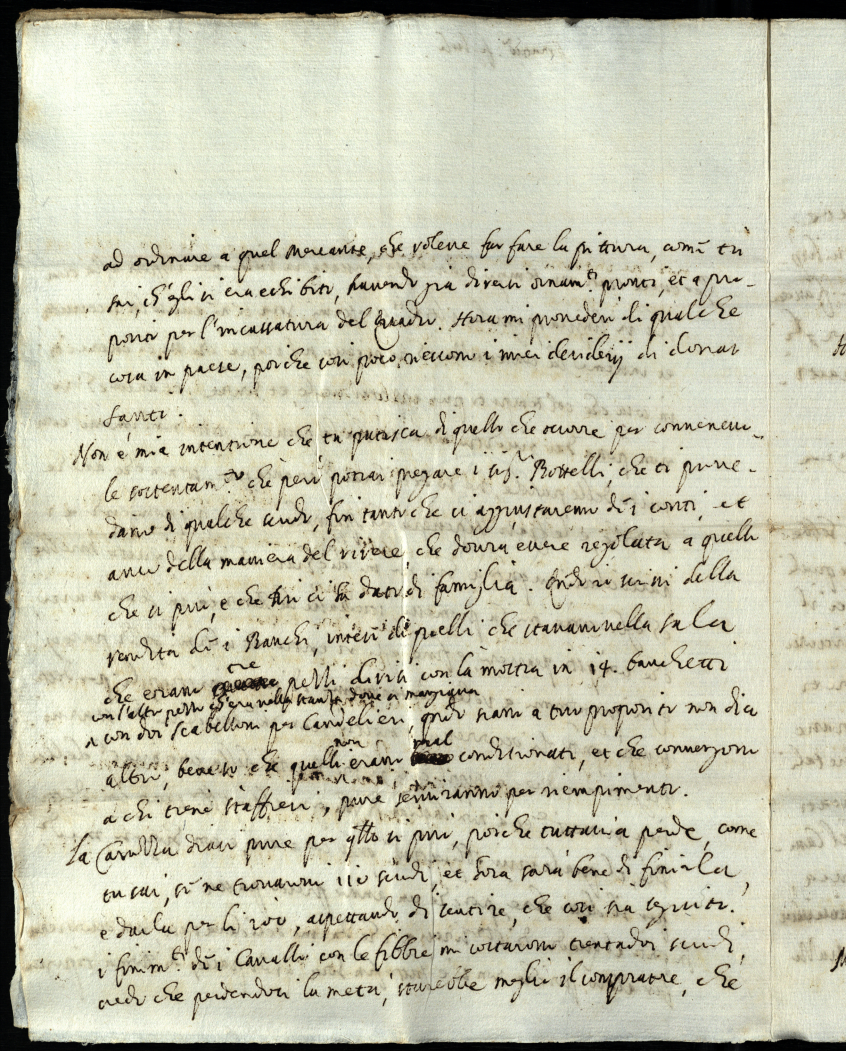 ad ordinare a quel Mercante, che voleva far fare la pittura, come tu
sai, ch'egli si era echibito, havendo già diversi ornam.ti pronti, et a pro-
posito per l'incassatura del Quadro. Hora mi provederò di qualche
cosa in paese, poiche così poco riescono i miei desiderij di donar
Santi.
Non è mia intentione che tu patisca di quello che occorre per conveneuo-
le sostentam.to che però potrai pregare i sig.ri Rostelli, che ti prove-
dano di qualche scudo, fin tanto che ci aggiustaremo de i conti, et
anco della maniera del vivere, che dovrà essere regolata a quello
che si può, e che ci ha dato di famiglia. Quando io scrissi della
vendita de i Banchi, intesi di quelli che stavano nella sala
che erano tre pezzi divisi con la mostra in 14. banchetti
con l'altro pezzo ch'era nella stanza dove si mangiava
e con doi scabelloni per Candelieri, quando siano a tuo proposito non dico
altro, benché so che quelli non erano mal conditionati, et che convengono
a chi tiene staffieri, pure serviranno per riempimento.
La Carrozza dirai pure per q.llo si può, poiche tuttavia perde, come
tu sai, se ne trovarono 110 scudi, et hora sarà bene di finirla,
e darla per li 100, aspettando di sentire, che così sia seguito.
i finim.ti de i Cavalli con le fibbie mi costarono trentadoi scudi,
credo che perdendoci la metà, starebbe meglio il comprarore, che